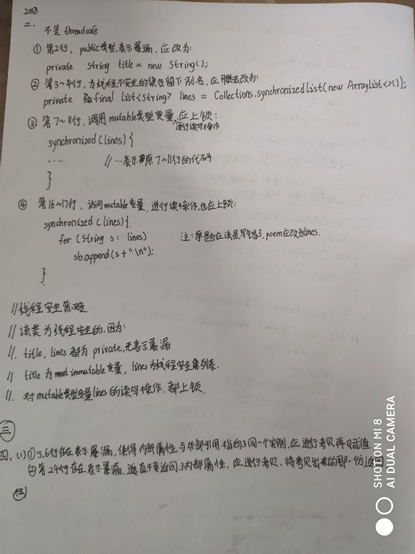 2018
二、
不是 threadsafe
① 第2行, public类型, 表示暴漏, 应改为:
private String title = new String();
② 第3~4行, 为线程不安全的 留下别名, 应 改为:
private final List<String> lines = Collections.synchronizedList(new ArrayList<>());
③ 第7~11行, 调用mutable类型变量, 应上锁:
进行读写操作
synchronized (lines) {
.... //...表示 原7~11行的代码
}
④ 第16~17行, 访问mutable变量, 进行读操作, 也应上锁:
synchronized (lines) {
for (String s: lines) 注: 原 应该是写错了, poem应改为lines.
sb.append(s+"\n");
}
//线程安全策略
//该类为线程安全的, 因为:
//. title, lines都为private, 无表示暴漏
//. title为immutable变量, lines为线程安全集列表.
//. 对mutable类型变量lines的读写操作, 都上锁.
三
四、(1) ①5,6行存在表示暴漏, 使得内部属性与外部引用指向了同一个实例, 应进行拷贝再赋值
②第24行存在表示暴漏, 返直接返回了内部属性, 应进行拷贝, 将拷贝出来的那一份返回
SHOT ON MI 8
AI DUAL CAMERA